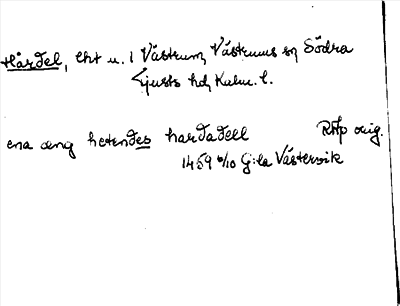 Hårdel, lht u. i Västrum, Västrums sn Södra
Tjusts hd, Kalm. l.
ena æng hetendes hardadell RAp orig.
1459 6/10 G:la Västervik